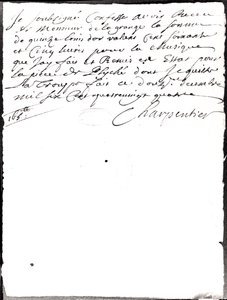 Je soubsigné Confesse avoir Receu
de Monsieur de la grange la somme
de quinze louis d'or valant Cent soixante
et Cinq livres pour la Musique
que J'ay fait et Remis en Estat pour
la piece de Psyché dont Je quitte
la Trouppe fait ce douz. decembre
mil six Cent quatrevingt quatre
Charpentier
165ᵗᵗ